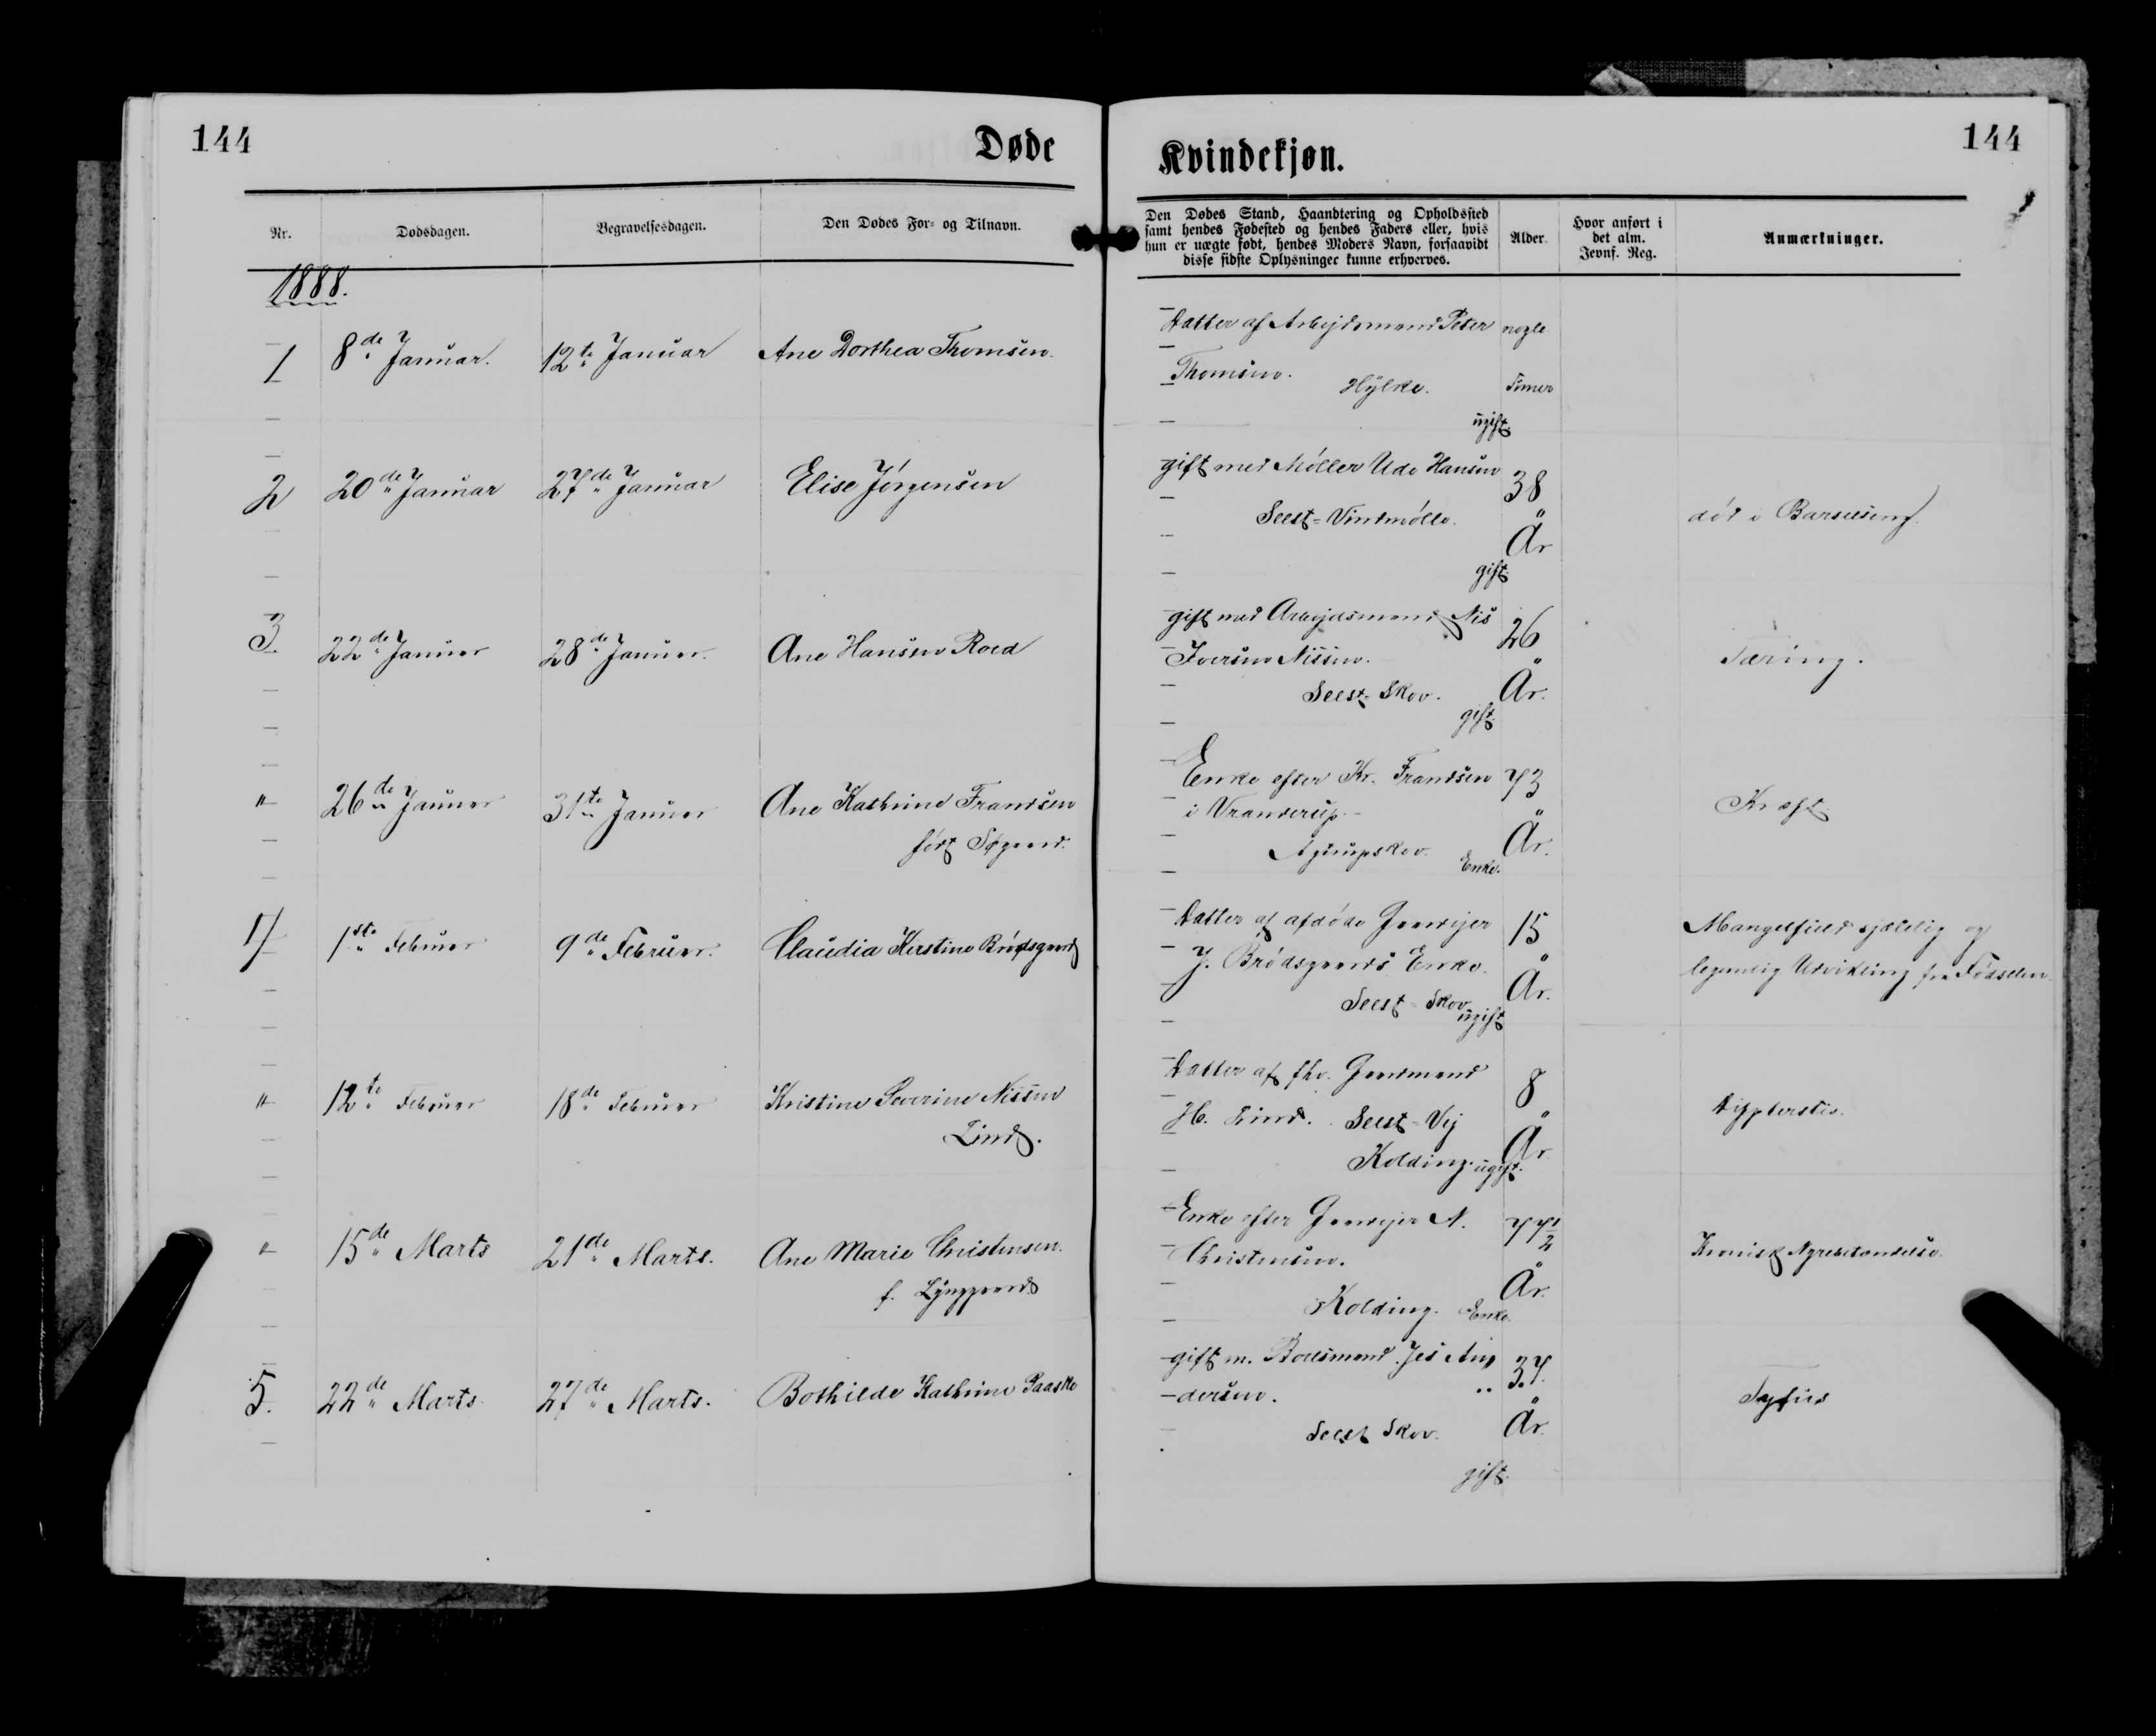 144
Døde
Kvindekjøn.
144
Nr.
Dødsdagen.
Begravelsesdagen.
Den Dødes For- og Tilnavn.
Den Dødes Stand, Haandtering og Opholdssted
samt hendes Fødested og hendes Faders eller, hvis
hun er uægte født, hendes Moders Navn, forsaavidt
disse sidste Oplysninger kunne erhverves.
Alder.
Hvor anført i
det alm.
Jevnf. Reg.
Anmærkninger.
1888.
1
8de Januar.
12te Januar
Ane Dorthea Thomsen.
Datter af Arbejdsmand Peter
Thomsen.
Hylke.
ugift.
nogle
Timer
2
20de Januar
27de Januar
Elise Jørgensen
gift med Møller Ude Hansen
Seest-Vindmølle.
gift.
38
År
død i Barselseng.
3.
22de Januar
28de Januar.
Ane Hansen Roed
gift med Arbejdsmand Nis
Iversen Nissen.
Seest-Skov.
gift.
26
År.
Tæring.
"
26de Januar
31te Januar
Ane Kathrine Frandsen
født Søgaard.
Enke efter Kr. Frandsen
i Vranderup.
Agtrupskov.
Enke.
73
År.
Kræft.
1ste Februar
9de Februar.
Claudia Kerstine Brødsgaard
Datter af afdøde Gaardejer
J. Brødsgaards Enke.
Seest-Skov.
ugift
15
År.
Mangelfuld sjælelig og
legemlig Udvikling fra Fødselen.
"
12te Februar
18de Februar
Kristine Severine Nissen
Lind.
Datter af fhv. Gaardmand
H. Lind. Seest-Vej
Kolding. ugift.
8
År
Difteritis.
"
15de Marts
21de Marts.
Ane Marie Christensen.
f. Lynggaard
Enke efter Gaardejer N.
Christensen.
Kolding. Enke.
77 1/2
År.
Kronisk Nyrebetændelse.
5.
22de Marts.
27de Marts.
Bothilde Kathrine Paaske
gift m. Boelsmand Jes An
dersen.
Seest Skov.
gift.
37.
År.
Tyfus